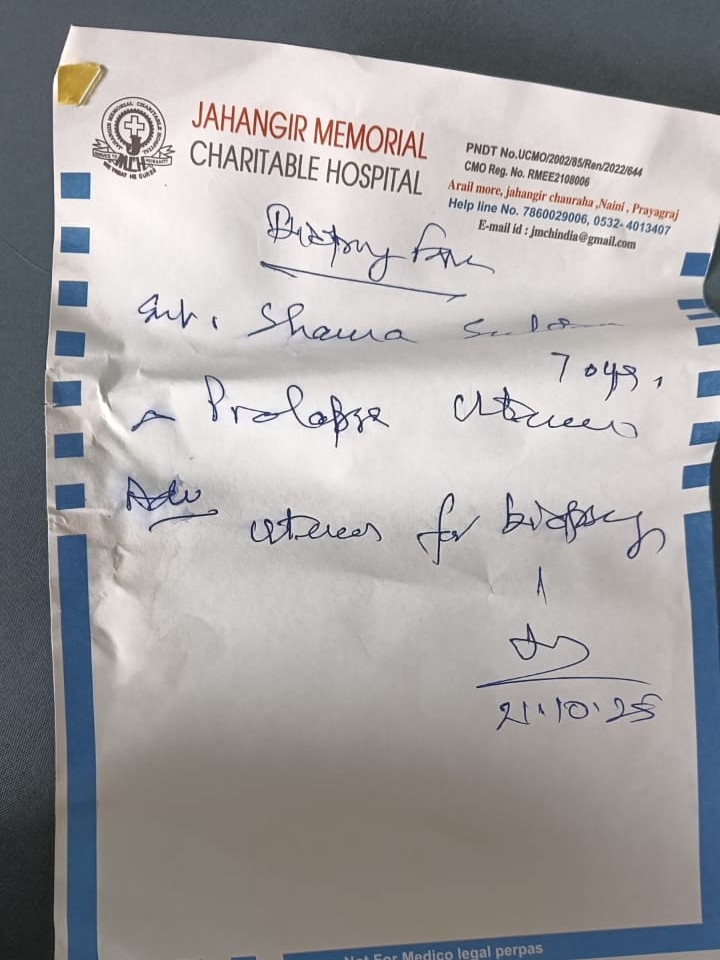 JAHANGIR MEMORIAL
CHARITABLE HOSPITAL
JAHANGIR MEMORIAL CHARITABLE HOSPITAL
JMCH
PNDT No.UCMO/2002/85/Ren/2022/644
CMO Reg. No. RMEE2108006
Arail more, jahangir chauraha ,Naini , Prayagraj
Help line No. 7860029006, 0532- 4013407
E-mail id : jmchindia@gmail.com
Biopsy Form
Smt. Shama
70 yrs,
Prolapse Uterus
Adv
Uterus for biopsy
21.10.25
Not For Medico legal perpas